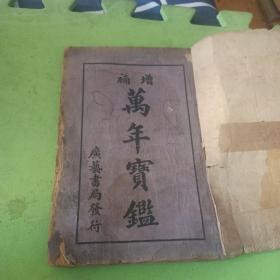 增補
萬年寶鑑
廣藝書局發行